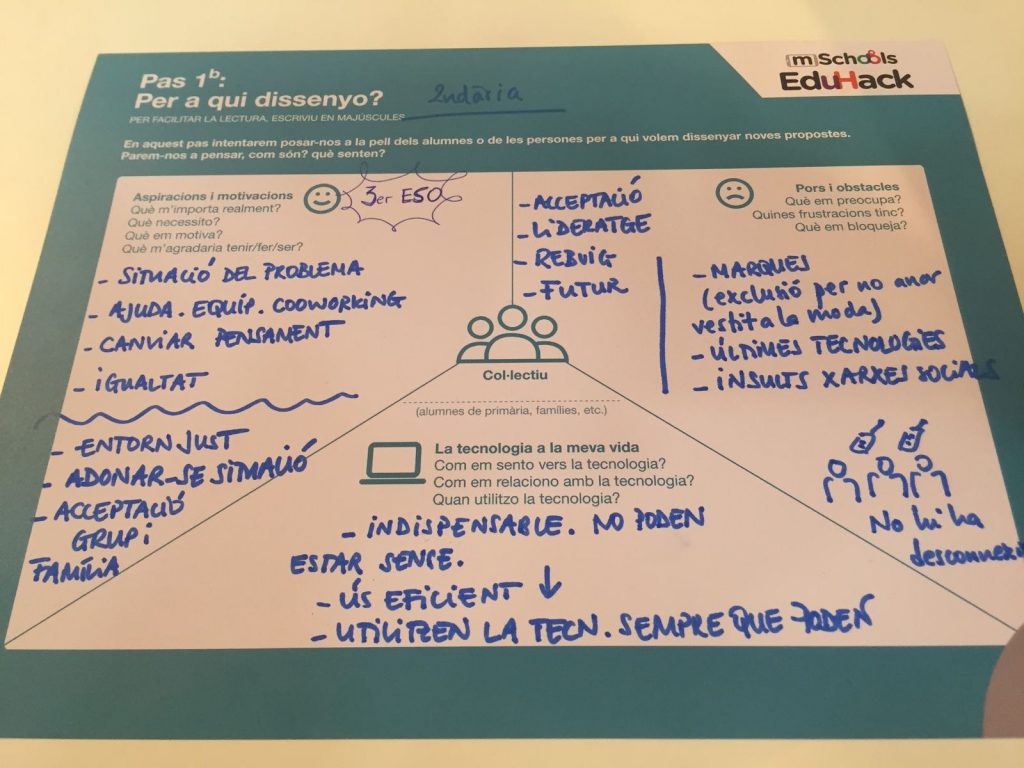 Pas 1b:
Per a qui dissenyo? 2ndària
PER FACILITAR LA LECTURA, ESCRIVIU EN MAJÚSCULES
(m)Schools
EduHack
En aquest pas intentarem posar-nos a la pell dels alumnes o de les persones per a qui volem dissenyar noves propostes.
Parem-nos a pensar, com són? què senten?
Aspiracions i motivacions
Què m'importa realment?
Què necessito?
Què em motiva?
Què m'agradaria tenir/fer/ser?
3er ESO
- SITUACIÓ DEL PROBLEMA
- AJUDA. EQUIP. COOWORKING
- CANVIAR PENSAMENT
- IGUALTAT
- ENTORN JUST
- ADONAR-SE SITUACIÓ
- ACCEPTACIÓ
GRUP i
FAMÍLIA
- ACCEPTACIÓ
- LIDERATGE
- REBUIG
- FUTUR
Pors i obstacles
Què em preocupa?
Quines frustracions tinc?
Què em bloqueja?
- MARQUES
(exclusió per no anar
vestit a la moda)
- ÚLTIMES TECNOLOGIES
- INSULTS XARXES SOCIALS
No hi ha
desconnexió
Col·lectiu
(alumnes de primària, famílies, etc.)
La tecnologia a la meva vida
Com em sento vers la tecnologia?
Com em relaciono amb la tecnologia?
Quan utilitzo la tecnologia?
- INDISPENSABLE. NO PODEN
ESTAR SENSE.
- ÚS EFICIENT ↓
- UTILITZEN LA TECN. SEMPRE QUE PODEN